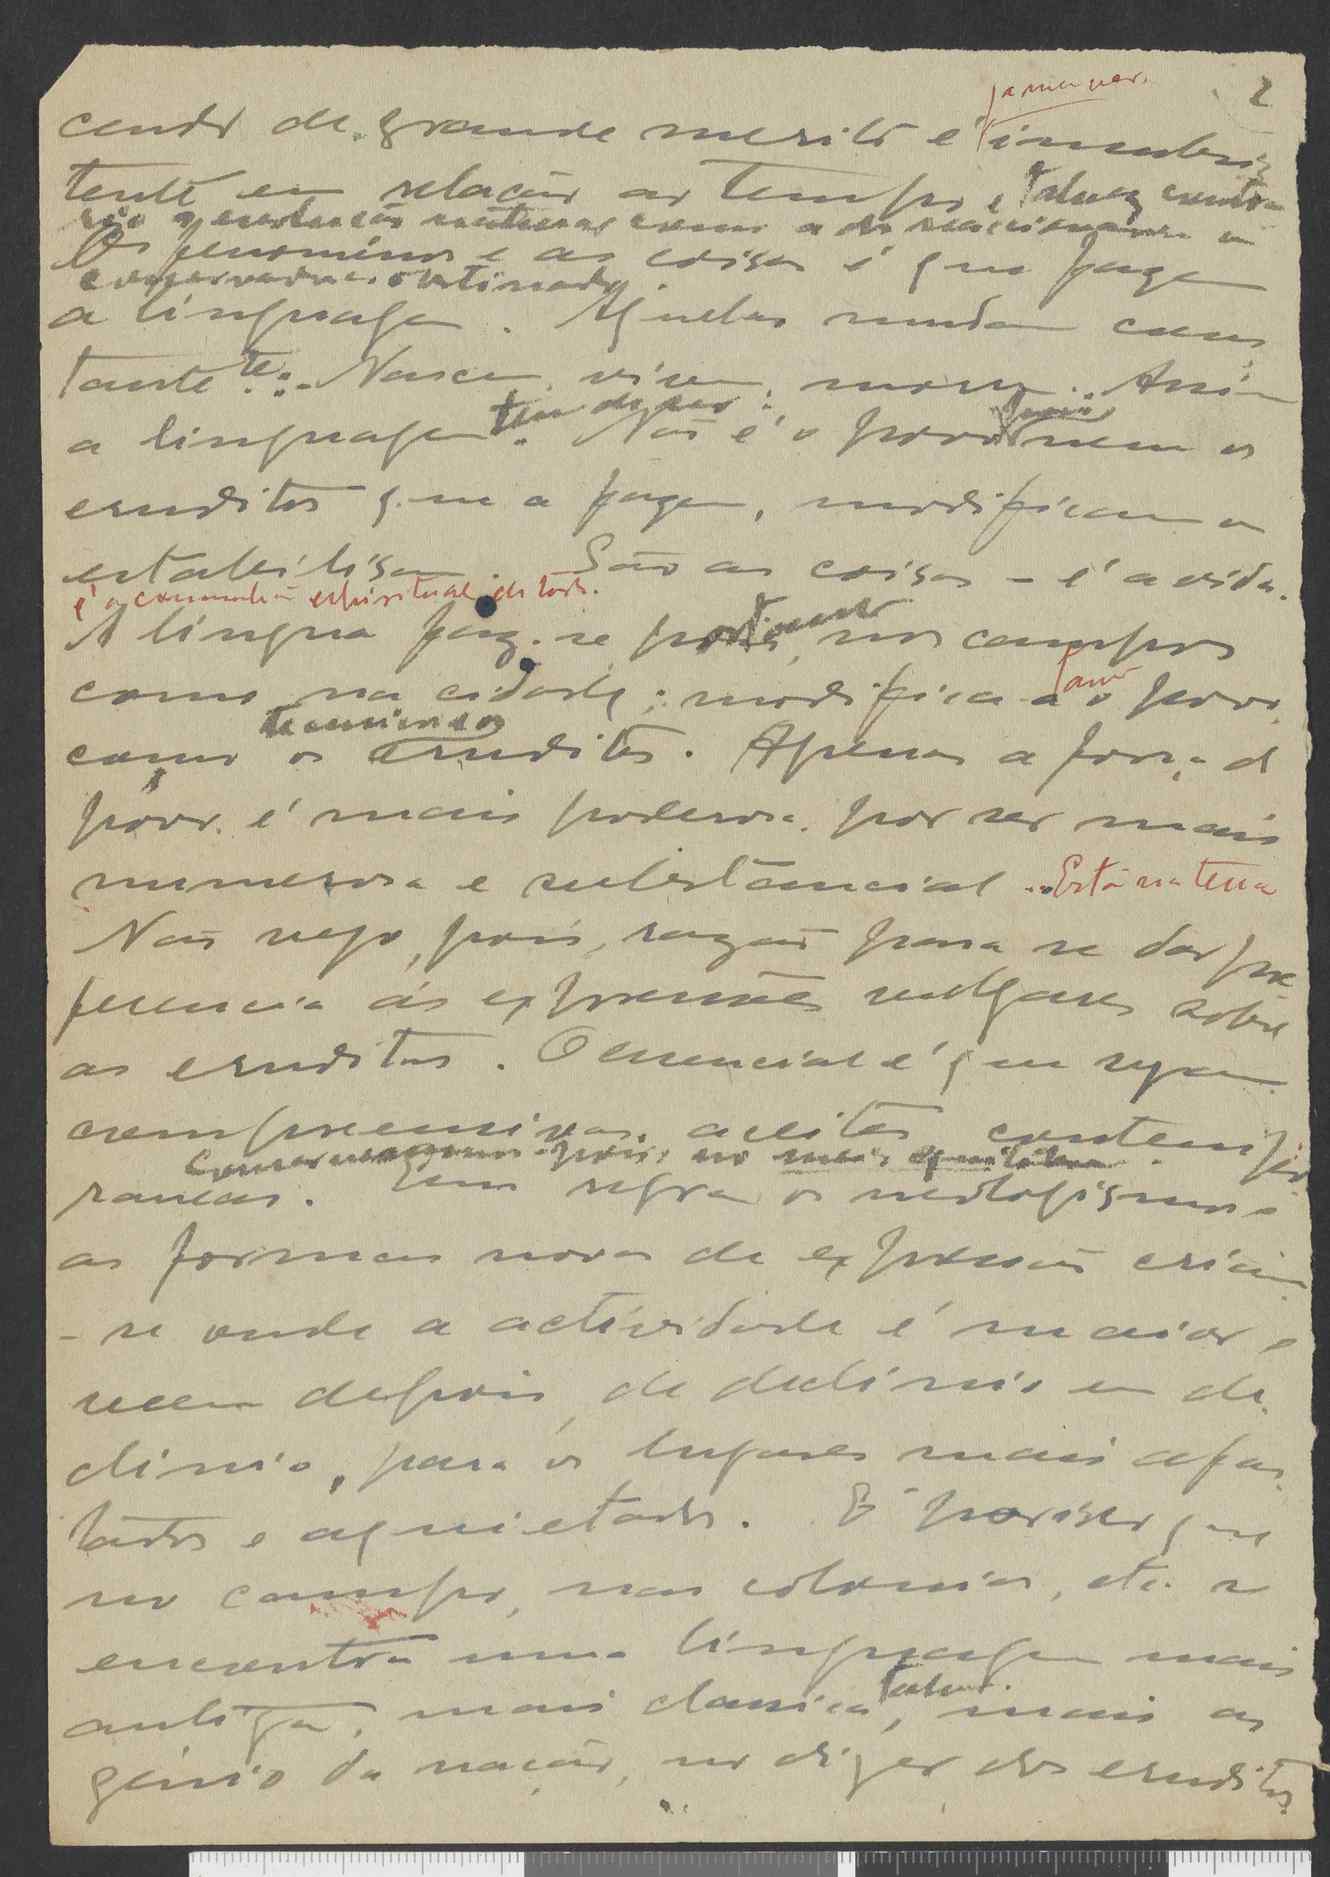 2
cendo de grande merito é
tente em relação ao tempo e talvez contra
rio a evolução como a do reaccionario ou
conservador obstinado.
Os fenominos e as coisas é que fazem
a linguagem. Aquelas mudam cons
tante te.:. Nascem, vivem, morrem. Assim
tem de ser
a linguagem. Não é o povo nem os
eruditos que a fazem, modificam ou
estabilisam. São as coisas – é a vida.
é a comunhão espiritual de todos.
A lingua faz-se nos campos
como na cidade; modifica-a o povo
como os eruditos. Apenas a força do
povo é mais poderosa por ser mais
numerosa e substâncial... Está na terra
Não vejo, pois, razão para se dar pre
ferencia ás expressões vulgares sobre
as eruditas. O essencial é que sejam
compreensivas, aceites contempo
raneas. Em regra os neologismos e
as formas novas de expressão criam
-se onde a actividade é maior e
vem depois, de declinio em de
clinio, para os lugares mais afas
tados e aquietados. É por isso que
no campo, nas colonias, etc. se
encontra uma linguagem mais
antiga, mais classica, talvez, mais ao
génio da nação, no dizer dos eruditos